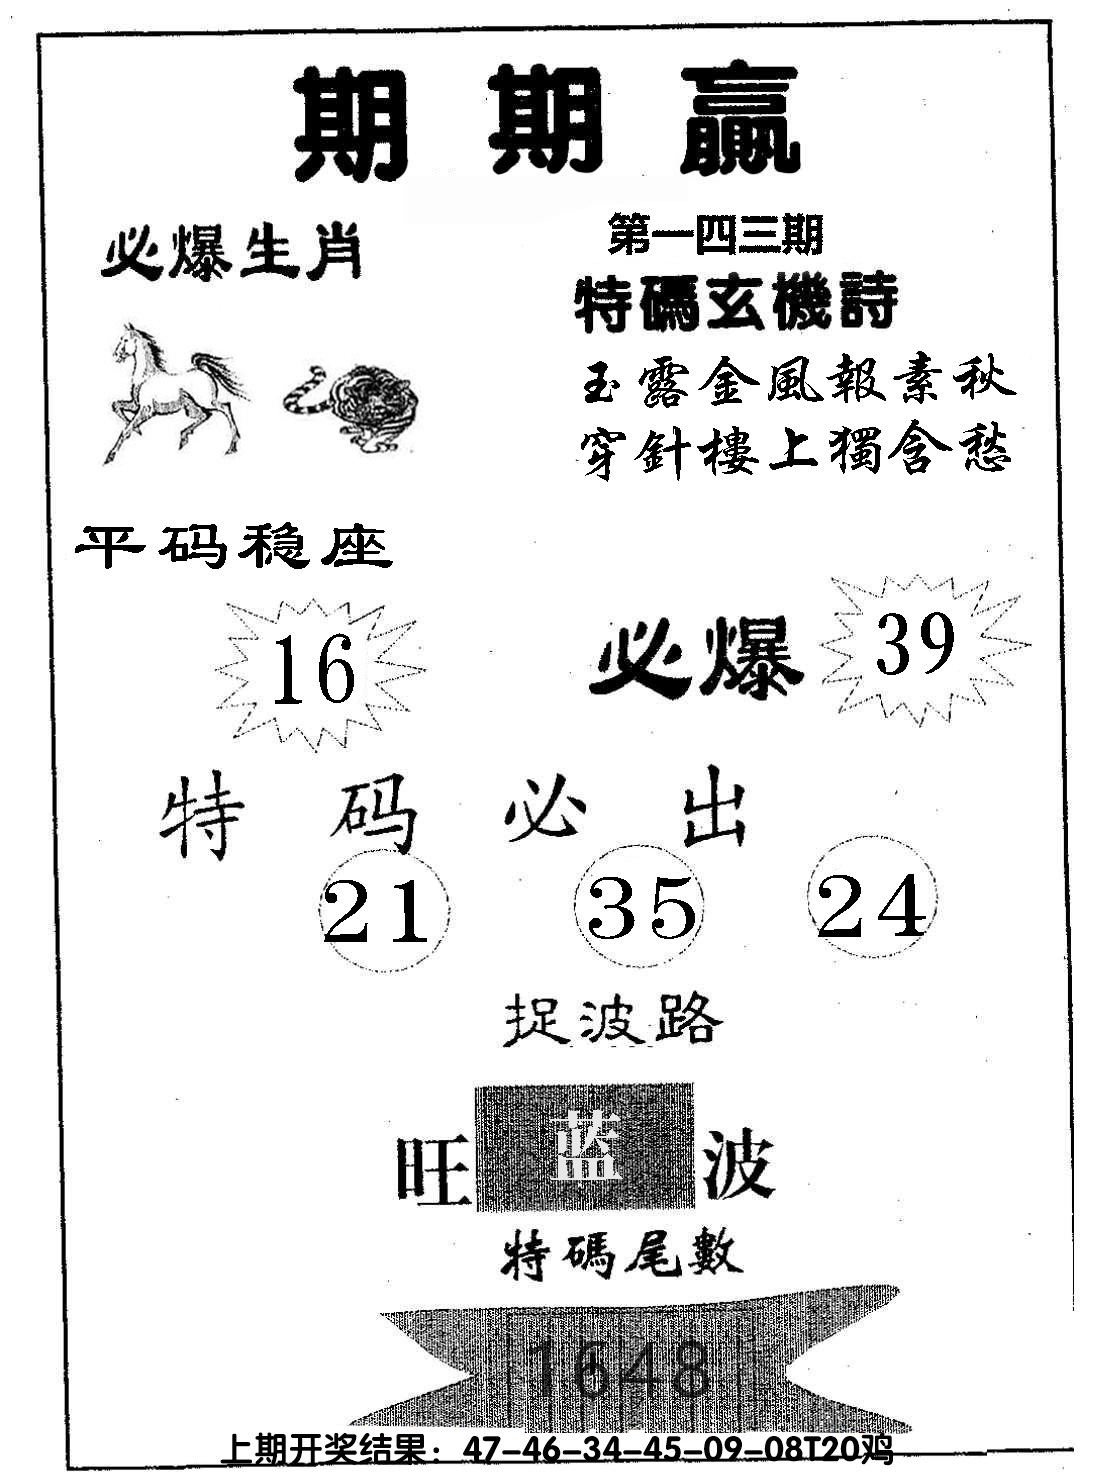 期期赢
必爆生肖
第一四三期
特碼玄機詩
玉露金風報素秋
穿針樓上獨含愁
平码稳座
16
必爆 39
特码必出
21 35 24
捉波路
旺蓝波
特碼尾數
1648
上期开奖结果：47-46-34-45-09-08T20鸡